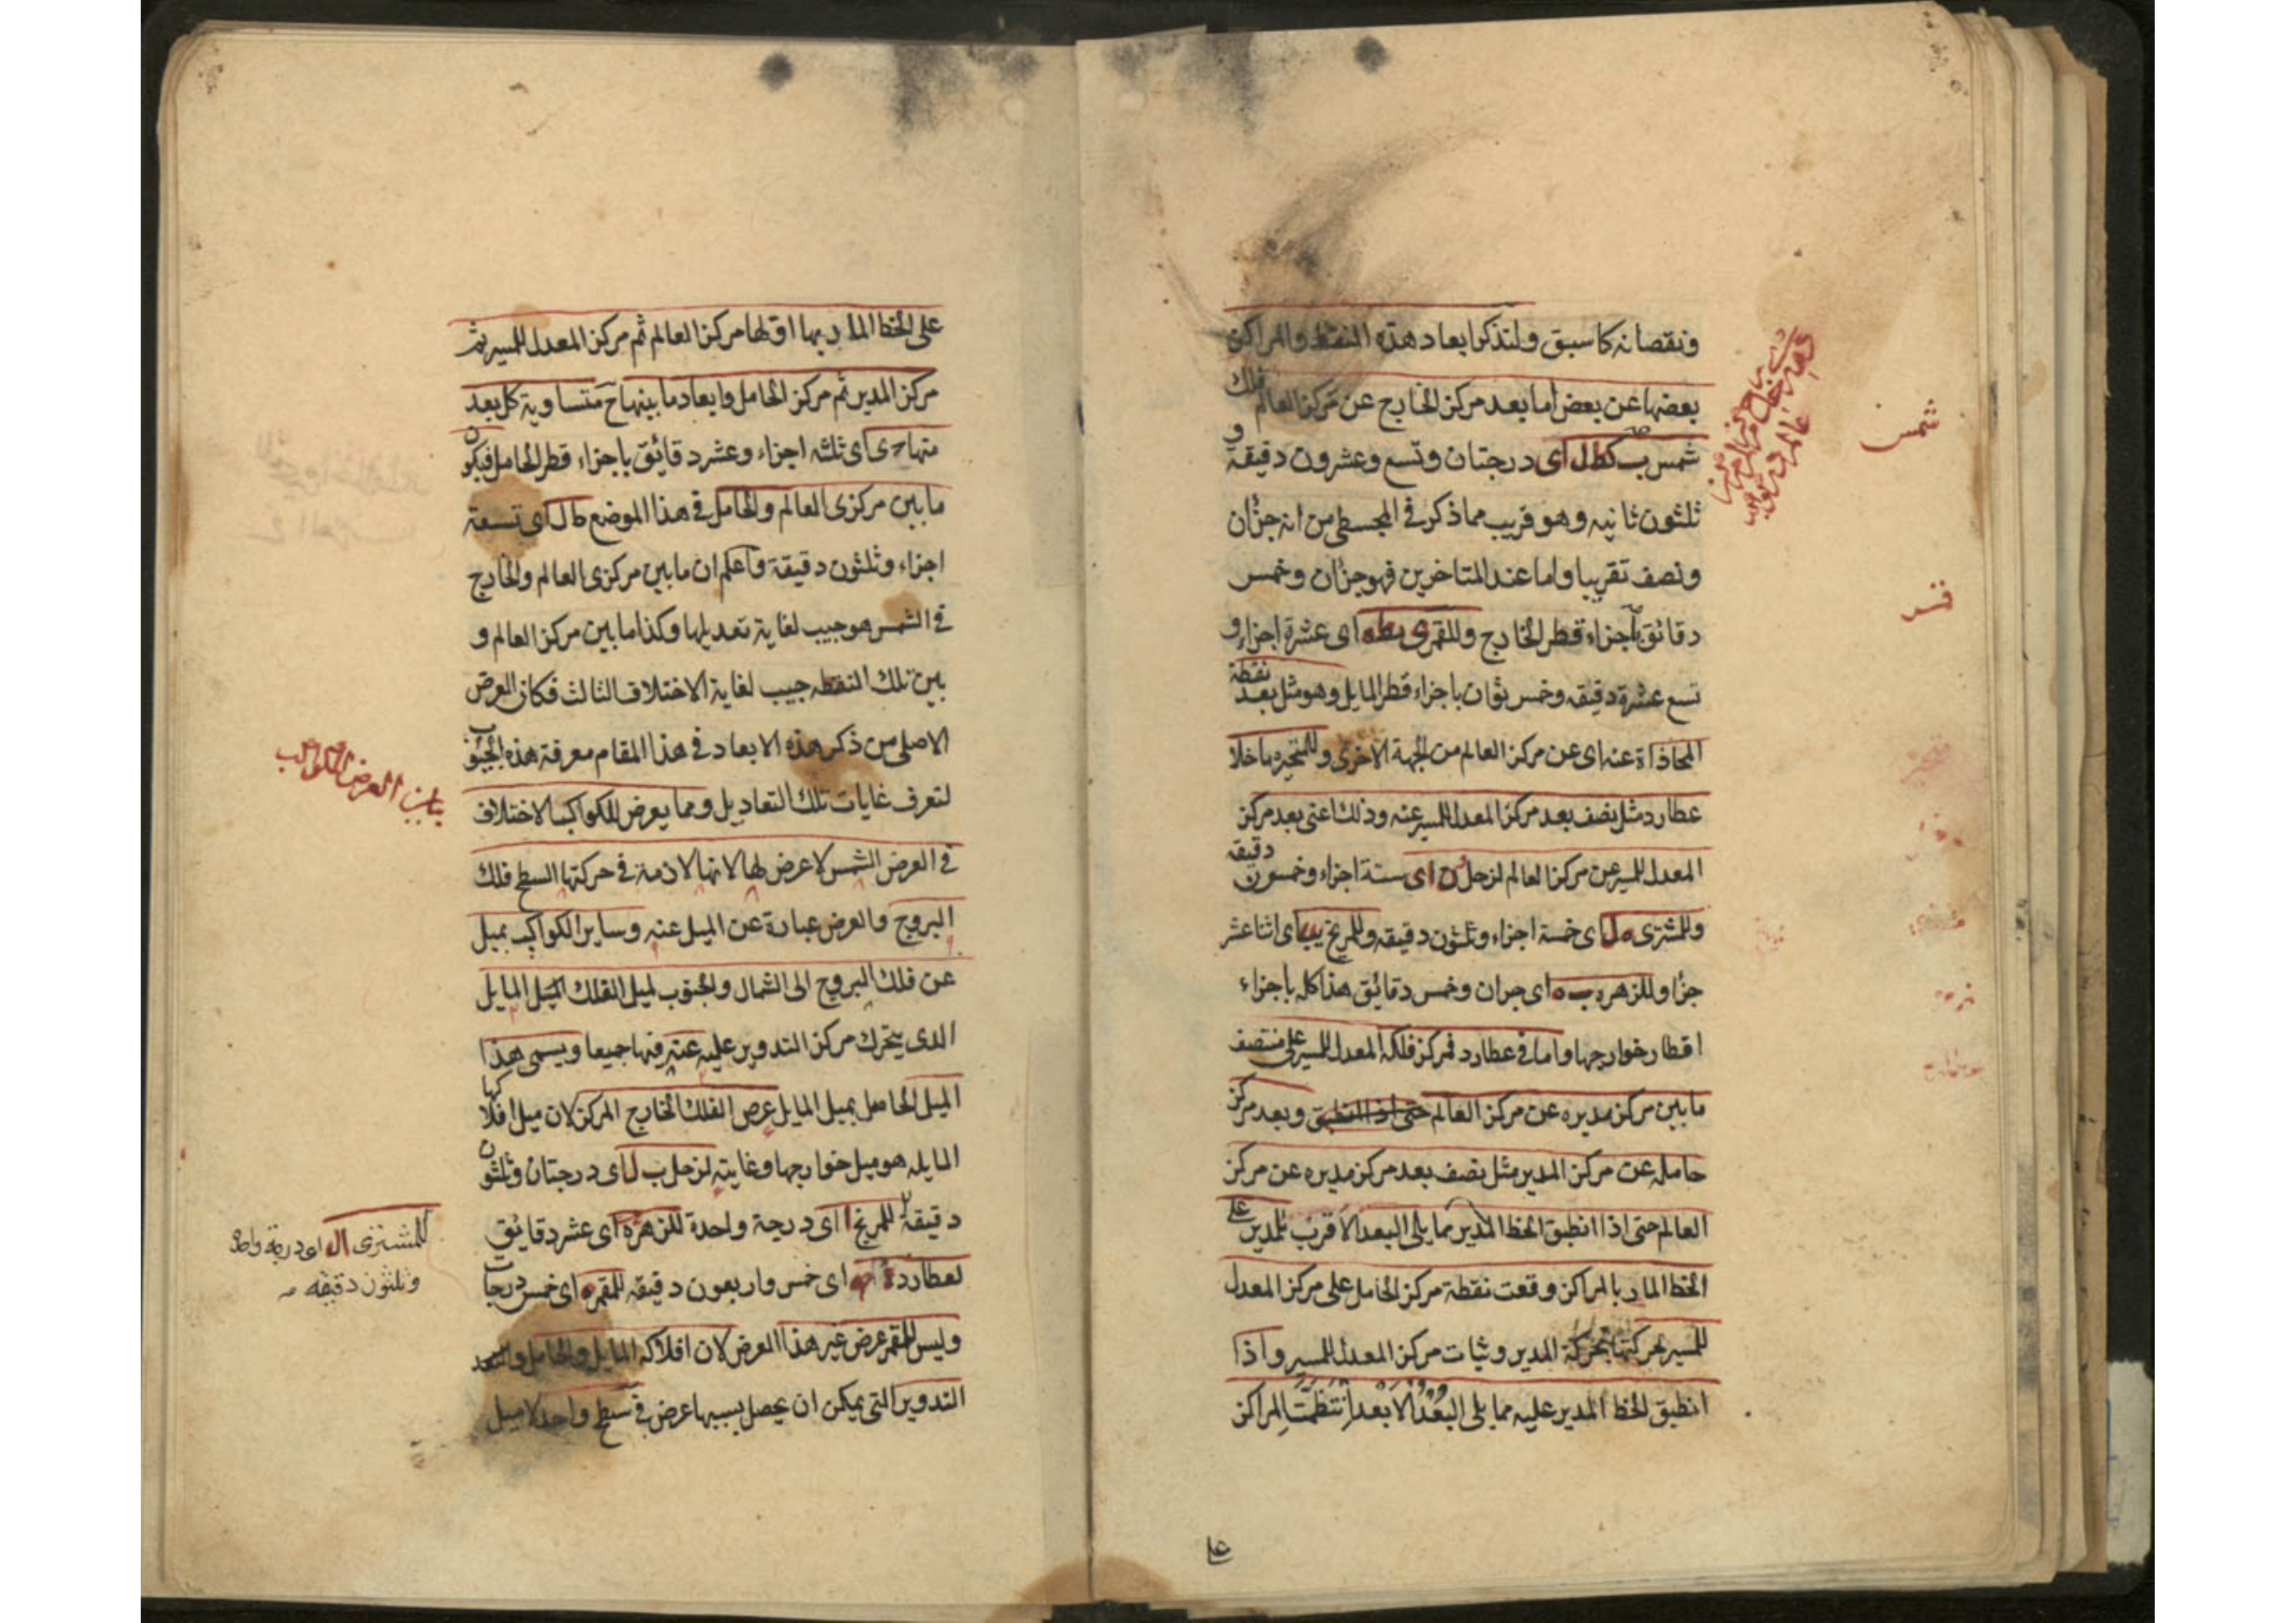 ونقصانه كما سبق ولنذكر ابعاد هذه النقط والمراكز
بعضها عن بعض اما بعد مركز الخارج عن مركز العالم فلك
شمس ب كط ل اى درجتان وتسع وعشرون دقيقة و
ثلثون ثانيه وهو قريب مما ذكر فى المجسطى من انه جزٔان
ونصف تقريبا واما عند المتاخرين فهو جزٔان وخمس
دقائق باجزاء قطر الخارج وللقمر ى يطه اى عشرة اجزاء و
تسع عشرة دقيقه وخمس ثوان باجزاء قطر المايل وهو مثل بعد نقطة
المحاذاة عنه اى عن مركز العالم من الجهة الاخرى وللمتحيره ما خلا
عطارد مثل نصف بعد مركز المعدل للمسير عنه وذلك اعنى بعد مركز
المعدل للمسير عن مركز العالم لزحل و ن اى ستة اجزاء وخمسون دقيقه
وللمشترى ه ل اى خمسة اجزاء وثلثون دقيقه وللمريخ يب اى اثنا عشر
جزٔا وللزهره ب ه اى جزٔان وخمس دقائق هذا كله باجزاء
اقطار خوارجها واما فى عطارد فمركز فلكه المعدل للمسير على منتصف
ما بين مركز مديره عن مركز العالم حتى اذا انطبق وبعد مركز
حامله عن مركز المدير مثل نصف بعد مركز مديره عن مركز
العالم حتى اذا انطبق الخط المدير مما يلى البعد الاقرب للمدير على
الخط المار بالمراكز وقعت نقطة مركز الحامل على مركز المعدل
للمسير بحركتها بحركة المدير وثبات مركز المعدل للمسير واذا
انطبق الخط المدير عليه مما يلى البعد الابعد انتظمت المراكز
على
شمس
قمر
مشترى
على الخط المار بها اولها مركز العالم ثم مركز المعدل للمسير ثم
مركز المدير ثم مركز الحامل وابعاد ما بينها ح متساوية كل بعد
منها ح ى اى ثلثه اجزاء وعشر دقائق باجزاء قطر الحامل فيكون
ما بين مركزى العالم والحامل فى هذا الموضع ط ل اى تسعة
اجزاء وثلثون دقيقة واعلم ان ما بين مركزى العالم والخارج
فى الشمس هو جيب لغاية تعديلها وكذا ما بين مركز العالم و
بين تلك النقطه جيب لغاية الاختلاف الثالث فكان الغرض
الاصلى من ذكر هذه الابعاد فى هذا المقام معرفة هذه الجيوب
لتعرف غايات تلك التعاديل ومما يعرض للكواكب الاختلاف
فى العرض الشمس لا عرض لها لانها لازمة فى حركتها السطح فلك
البروج والعرض عبارة عن الميل عنه وساير الكواكب بميل
عن فلك البروج الى الشمال والجنوب لميل الفلك الميل المايل
الذى يتحرك مركز التدوير عليه عنه فيها جميعا ويسمى هذا
الميل الحاصل بميل المايل عرض الفلك الخارج المركز لان ميل افلاكها
المايله هو ميل خوارجها وغايته لزحل ب ل اى درجتان وثلثون
دقيقة للمريخ ا اى درجة واحدة للزهره ى اى عشر دقايق
لعطارد مه اى خمس واربعون دقيقه للقمر ه اى خمس درجات
وليس للقمر عرض غير هذا العرض لان افلاكه المايل والحامل و
التدوير التى يمكن ان يحصل بسببها عرض فى سطح واحد لا ميل
بيان العرض للكواكب
للمشترى ا ل اى درجة واحدة
وثلثون دقيقه